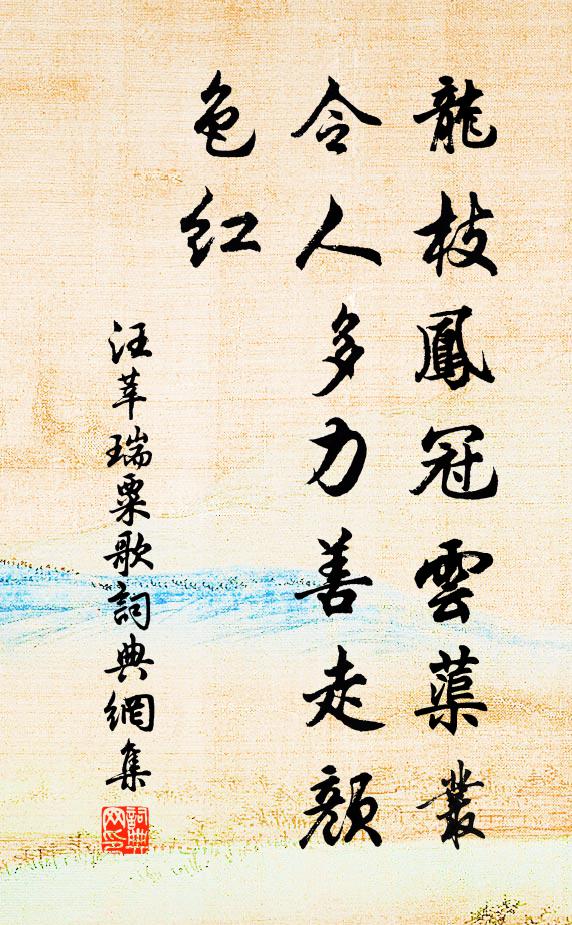 龍枝鳳冠雲蕖叢
令人多力善走顏
色紅
汪莘瑞粟歌詞典網集
詞典网印